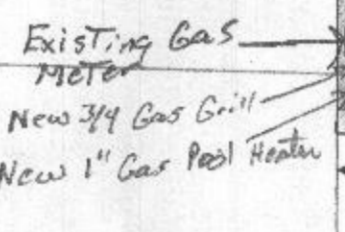 Existing Gas
Meter
New 3/4 Gas Grill
New 1" Gas Pool Heater